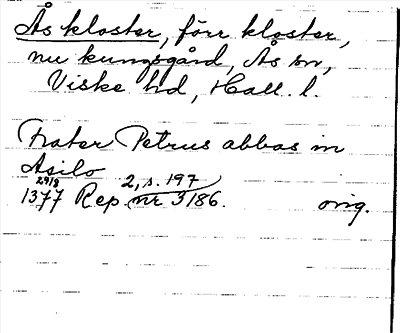 Ås kloster, förr kloster,
nu kungsgård, Ås sn,
Viske hd, Hall. l.
Frater Petrus abbas in
Asilo
29/8 2, s. 197
1377 Rep nr 3186. orig.